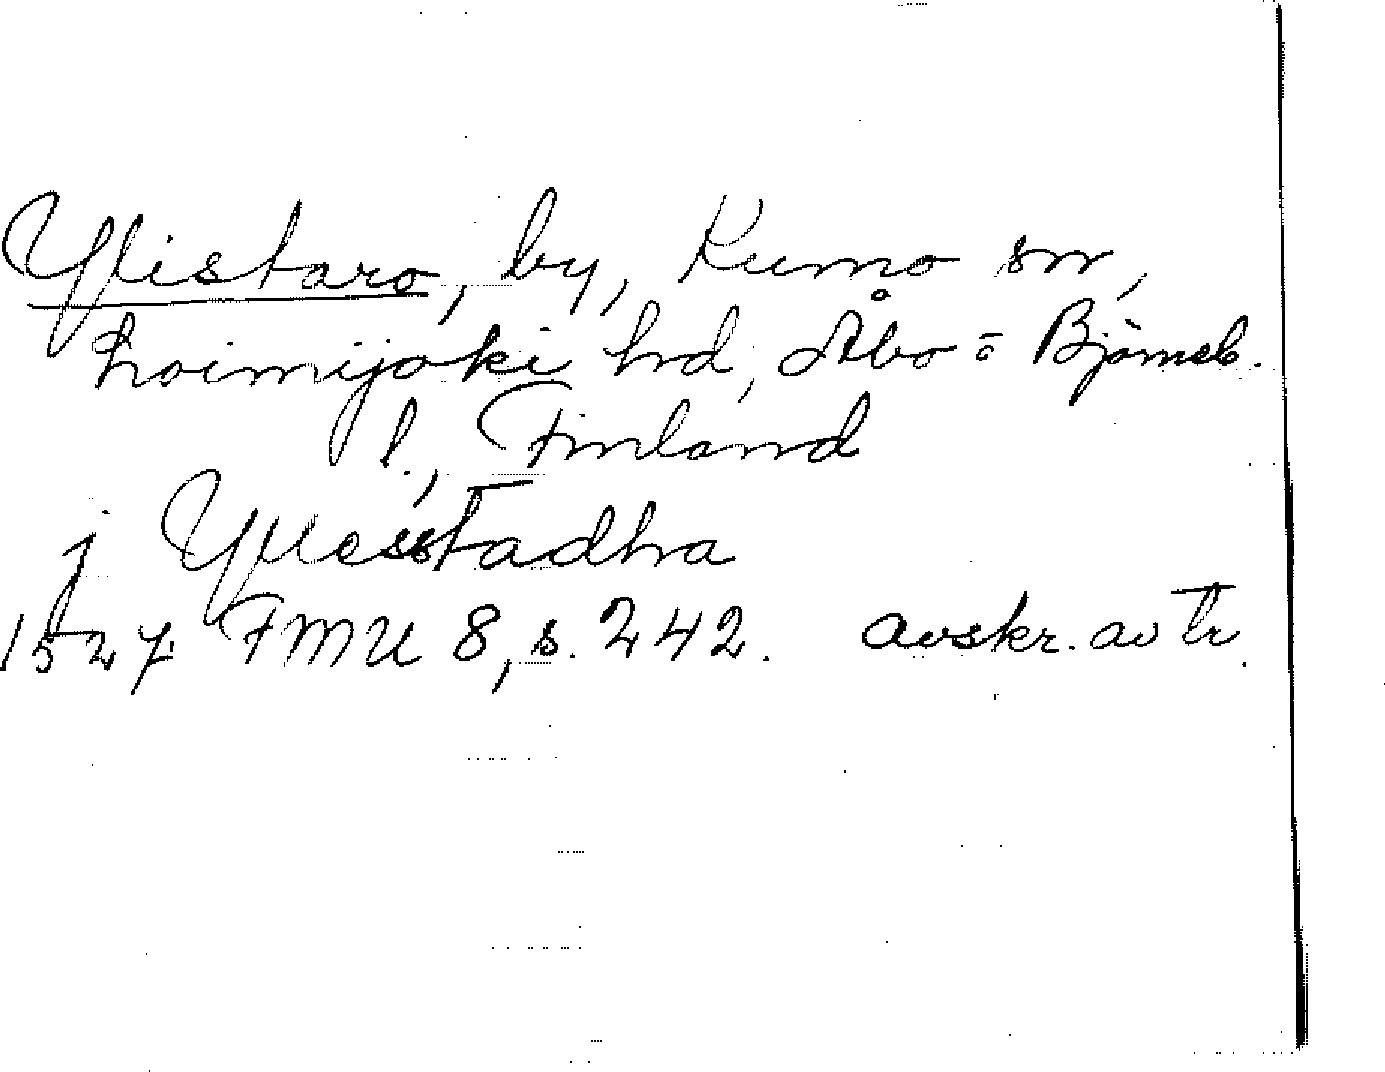 Ylistaro, by, Kumo sn,
Loimijoki hd, Åbo- o Björneb.
l., Finland
j Yllesstadha
1527 FMU 8, s. 242. avskr. av tr.